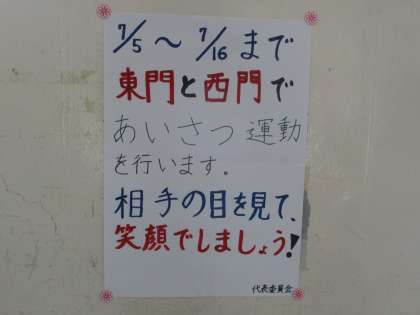 7/5～7/16まで
東門と西門で
あいさつ運動
を行います。
相手の目を見て、
笑顔でしましょう!
代表委員会